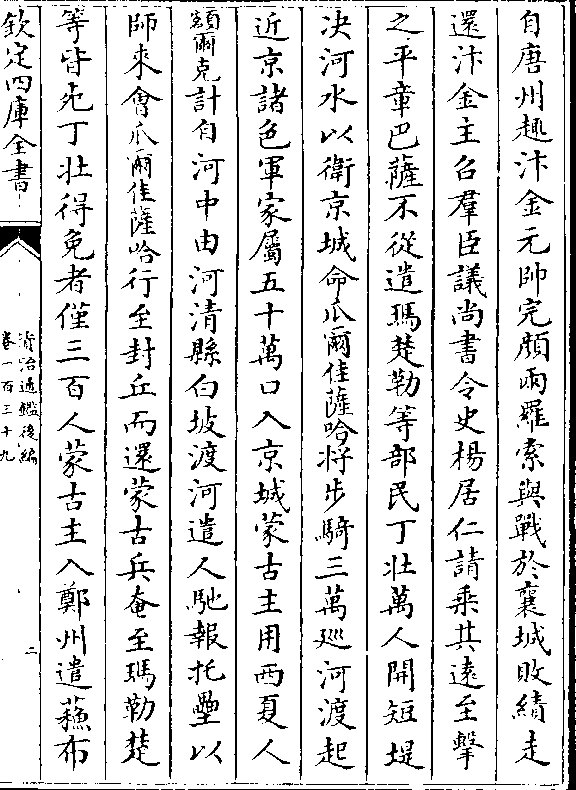 自唐州趣汴金元帥完顔兩羅索與戰於襄城敗績走
還汴金主召羣臣議尚書令史楊居仁請乗其逺至擊
之平章巴薩不從遣瑪楚勒等部民丁壯萬人開短堤
決河水以衛京城命瓜爾佳薩哈将步騎三萬廵河渡起
近京諸色軍家屬五十萬口入京城蒙古主用西夏人
額爾克計自河中由河清縣白坡渡河遣人馳報托壘以
師來會瓜爾佳薩哈行至封丘而還蒙古兵奄至瑪勒楚
等皆死丁壯得免者僅三百人蒙古主入鄭州遣蘓布
欽定四庫全書
資治通鑑後編
卷一百三十九
二